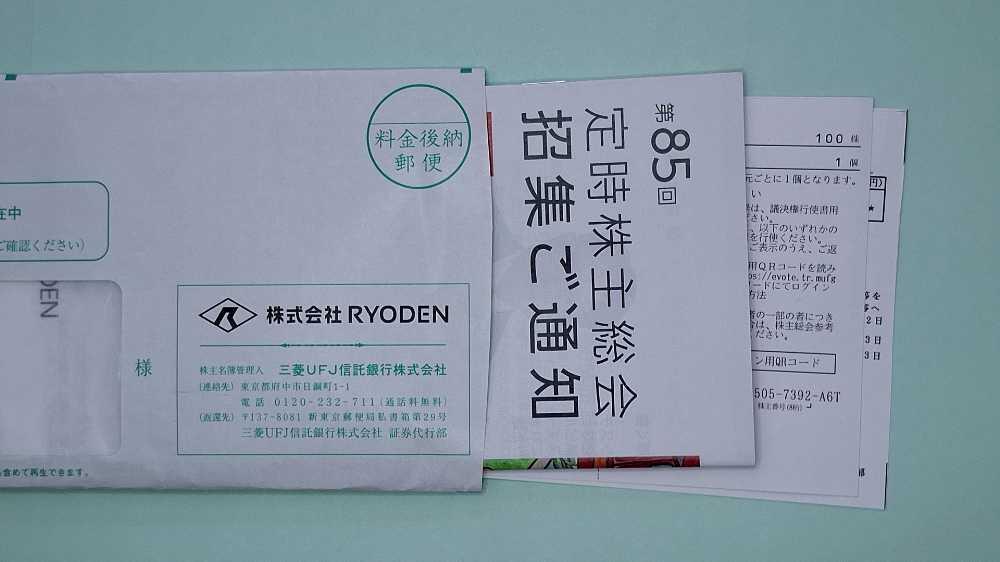 料金後納
郵便
在中
ご確認ください)
RYODEN
様
株式会社 RYODEN
株主名簿管理人 三菱UFJ信託銀行株式会社
(連絡先) 東京都府中市日鋼町1-1
電話 0120-232-711 (通話料無料)
(返還先) 〒137-8081 新東京郵便局私書箱第29号
三菱UFJ信託銀行株式会社 証券代行部
含めて再生できます。
第85回
定時株主総会
招集ご通知
100 株
1 個
元ごとに1個となります。
い
は、議決権行使書用
ださい。
、以下のいずれかの
を行使ください。
ご表示のうえ、ご返
用QRコードを読み
ps://evote.tr.mufg
ードにてログイン
方法
者の一部の者につき
合は、株主総会参考
ださい。
ン用QRコード
505-7392-A6T
株主番号(8桁)
円)
★
等を
等へ
2日
3日
3日
部